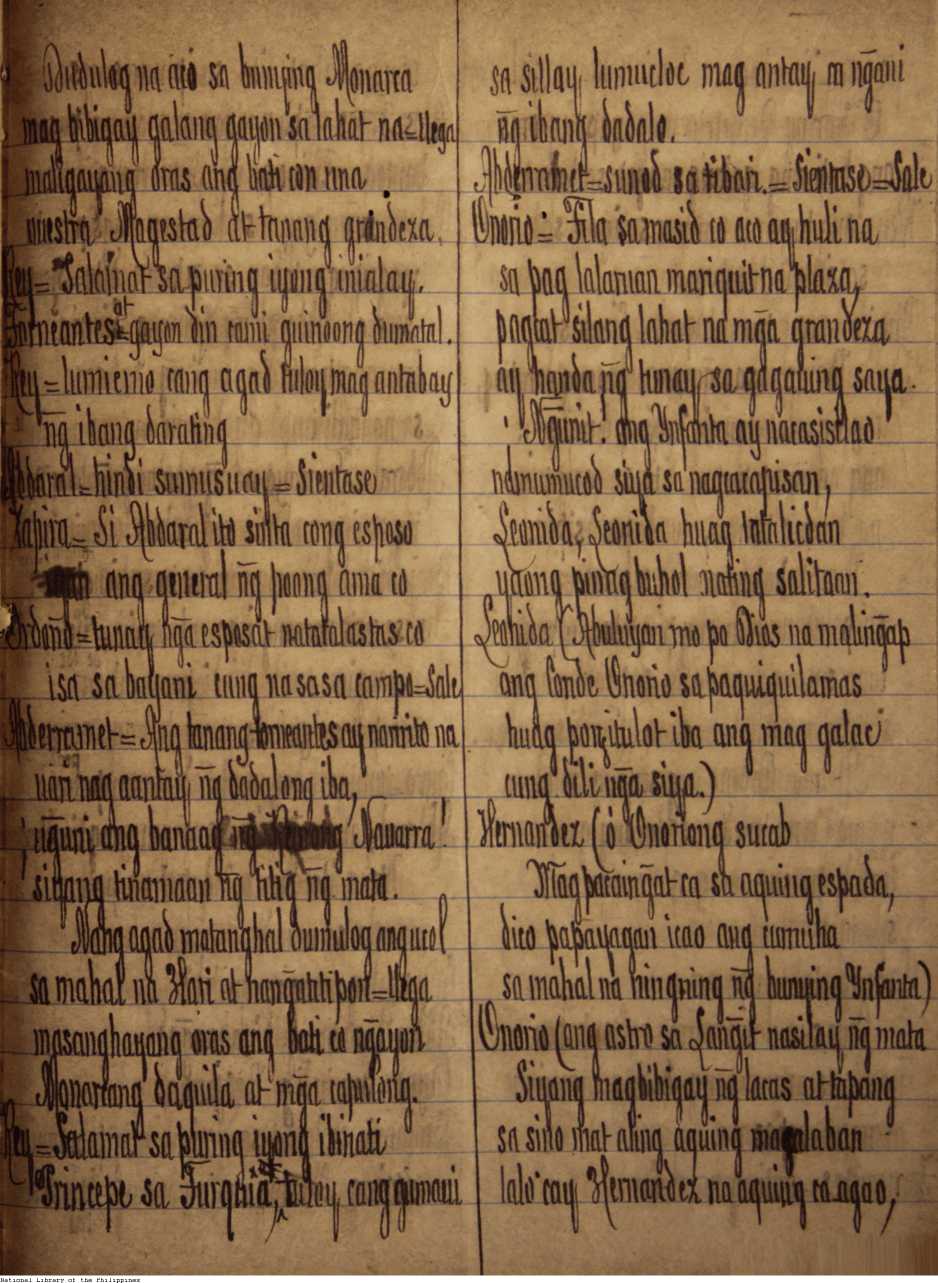 Dudulog na aco sa bunying Monarca
mag bibigay galang gayon sa lahat na=llega
maligayang oras ang bati con una
vuestra Magestad at tanang grandeza.
Rey= Salamat sa puring iyong inialay.
Torneantes= at gayon din cami guinoong dumatal.
Rey=lumicmo cang agad tuloy mag antabay
ñg ibang darating
Abdaral=hindi sumusuay=Sientase
Zapira= Si Abdaral ito sinta cong esposo
ang general ñg poong ama co
Ordoño=tunay ñga esposa't natatalastas co
isa sa bayani cung nasasa campo=Sale
Abderramet= Ang tanang torneantes ay narrito na
nag aantay ñg dadalong iba,
ñguni ang banaag Navarra!
siyang tinamaan ñg titig ñg mata.
Nang agad matanghal dumulog ang ucol
sa mahal na Hari at hangañtitipon=llega
masanghayang oras ang bati co ñgayon
Monarcang daquila at mg̃a capulong.
Rey=Salamat sa puring iyong ibinati
Princepe sa Turquia, tuloy cang gumaui
sa sillay, lumucloc mag antay, ca ñgani
ñg ibang dadalo.
Abderramet=sunod sa tibari.=Sientase=Sale
Onorio= Tila sa masid co aco ay huli na
sa pag lalaruan mariquit na plaza,
pagcat silang lahat na mg̃a grandeza
ay handa ñg tunay, sa gagauing saya.
Ñgunit! ang Ynfanta ay
namumucod siya sa nagcacapisan,
Leonida, Leonida huag tatalicdan
yaong pinag buhol nating salitaan.
Leonida (Abuluyan mo po Dios na maliñgap
ang Conde Onorio sa paquiquilamas
huag pong itulot iba ang mag galac
cung dili ñga siya.)
Hernandez (ò Onoriong sucab
Mag pacaiñgat ca sa aquing espada,
dico papayagan icao ang cumuha
sa mahal na ningning ñg bunying Ynfanta)
Onorio (ang astro sa Lañgit nasilay ñg mata
Siyang magbibigay ñg lacas at tapang
sa sino mat aling aquing macalaban
lalo cay Hernandez na aquing ca agao,